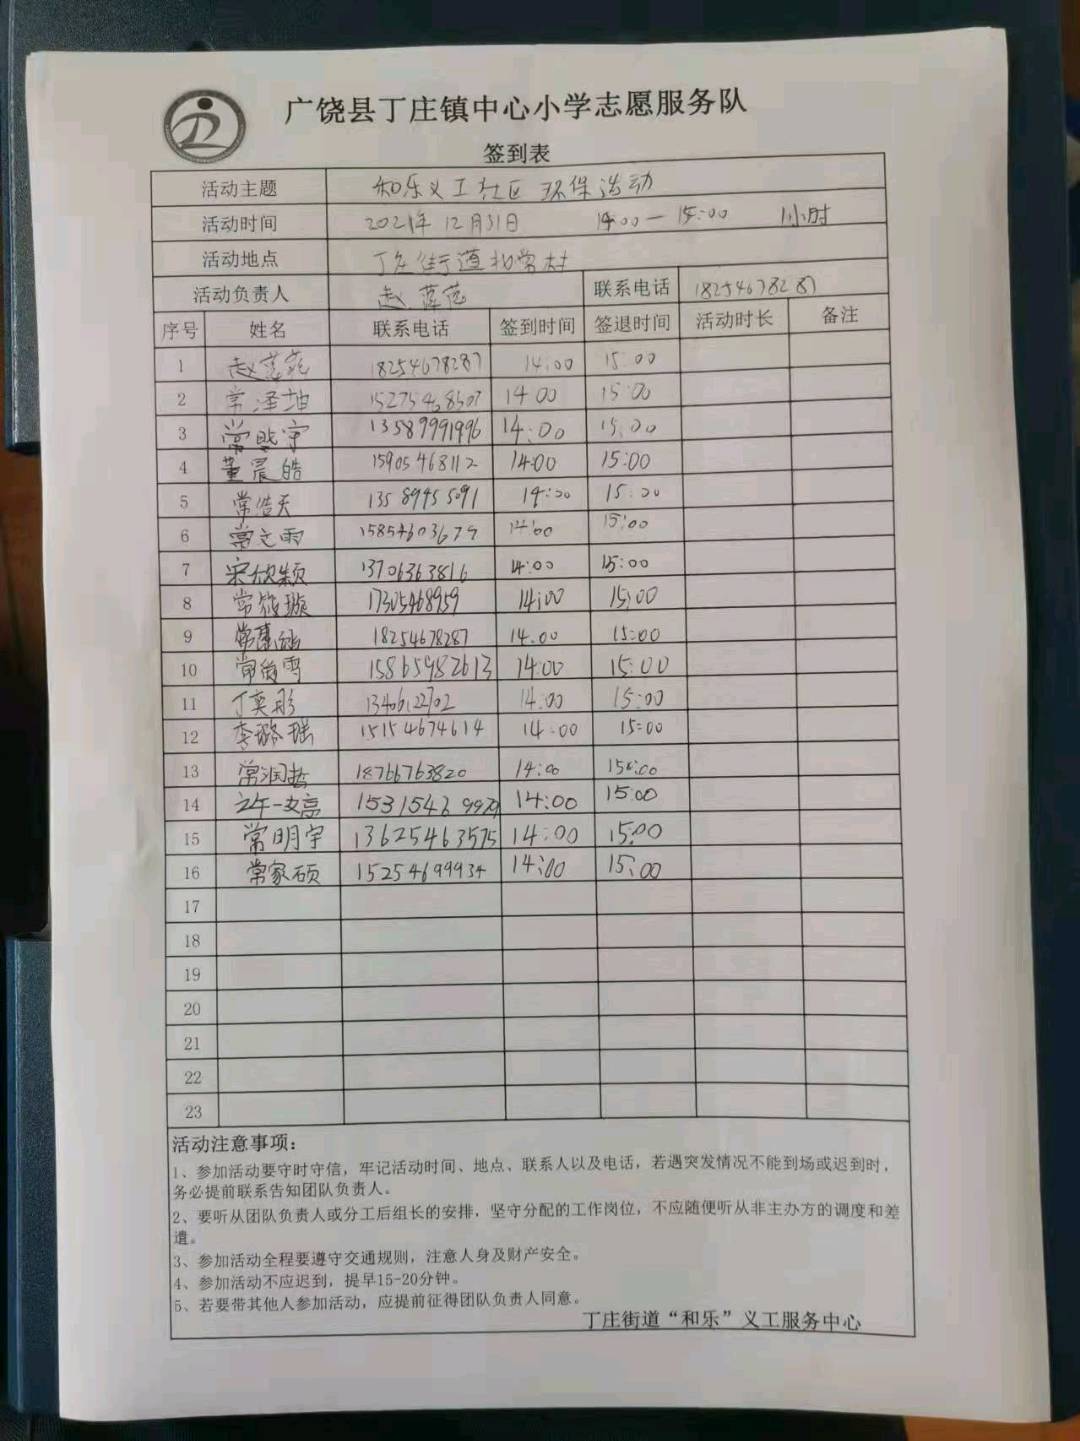 广饶县丁庄镇中心小学志愿服务队
签到表
活动主题 和乐义工社区环保活动
活动时间 2021年12月31日 14:00—15:00 1小时
活动地点 丁庄街道北常村
活动负责人 赵莲苑 联系电话 18254678287
序号 姓名 联系电话 签到时间 签退时间 活动时长 备注
1 赵莲苑 18254678287 14:00 15:00
2 常泽坤 15275468507 14:00 15:00
3 常晓宇 13589991996 14:00 15:00
4 董晨皓 15905468112 14:00 15:00
5 常浩天 13589455091 14:00 15:00
6 常文雨 15854603679 14:00 15:00
7 宋欣颖 13706363816 14:00 15:00
8 常筱璇 17305468959 14:00 15:00
9 常 18254678287 14:00 15:00
10 常雪 15865982613 14:00 15:00
11 丁奕彤 13406122702 14:00 15:00
12 李璐瑶 15154674614 14:00 15:00
13 常润哲 18766763820 14:00 15:00
14 14:00 15:00
15 常明宇 13625463575 14:00 15:00
16 常家硕 15254699934 14:00 15:00
17
18
19
20
21
22
23
活动注意事项：
1、参加活动要守时守信，牢记活动时间、地点、联系人以及电话，若遇突发情况不能到场或迟到时，
务必提前联系告知团队负责人。
2、要听从团队负责人或分工后组长的安排，坚守分配的工作岗位，不应随便听从非主办方的调度和差
遣。
3、参加活动全程要遵守交通规则，注意人身及财产安全。
4、参加活动不应迟到，提早15-20分钟。
5、若要带其他人参加活动，应提前征得团队负责人同意。
丁庄街道“和乐”义工服务中心